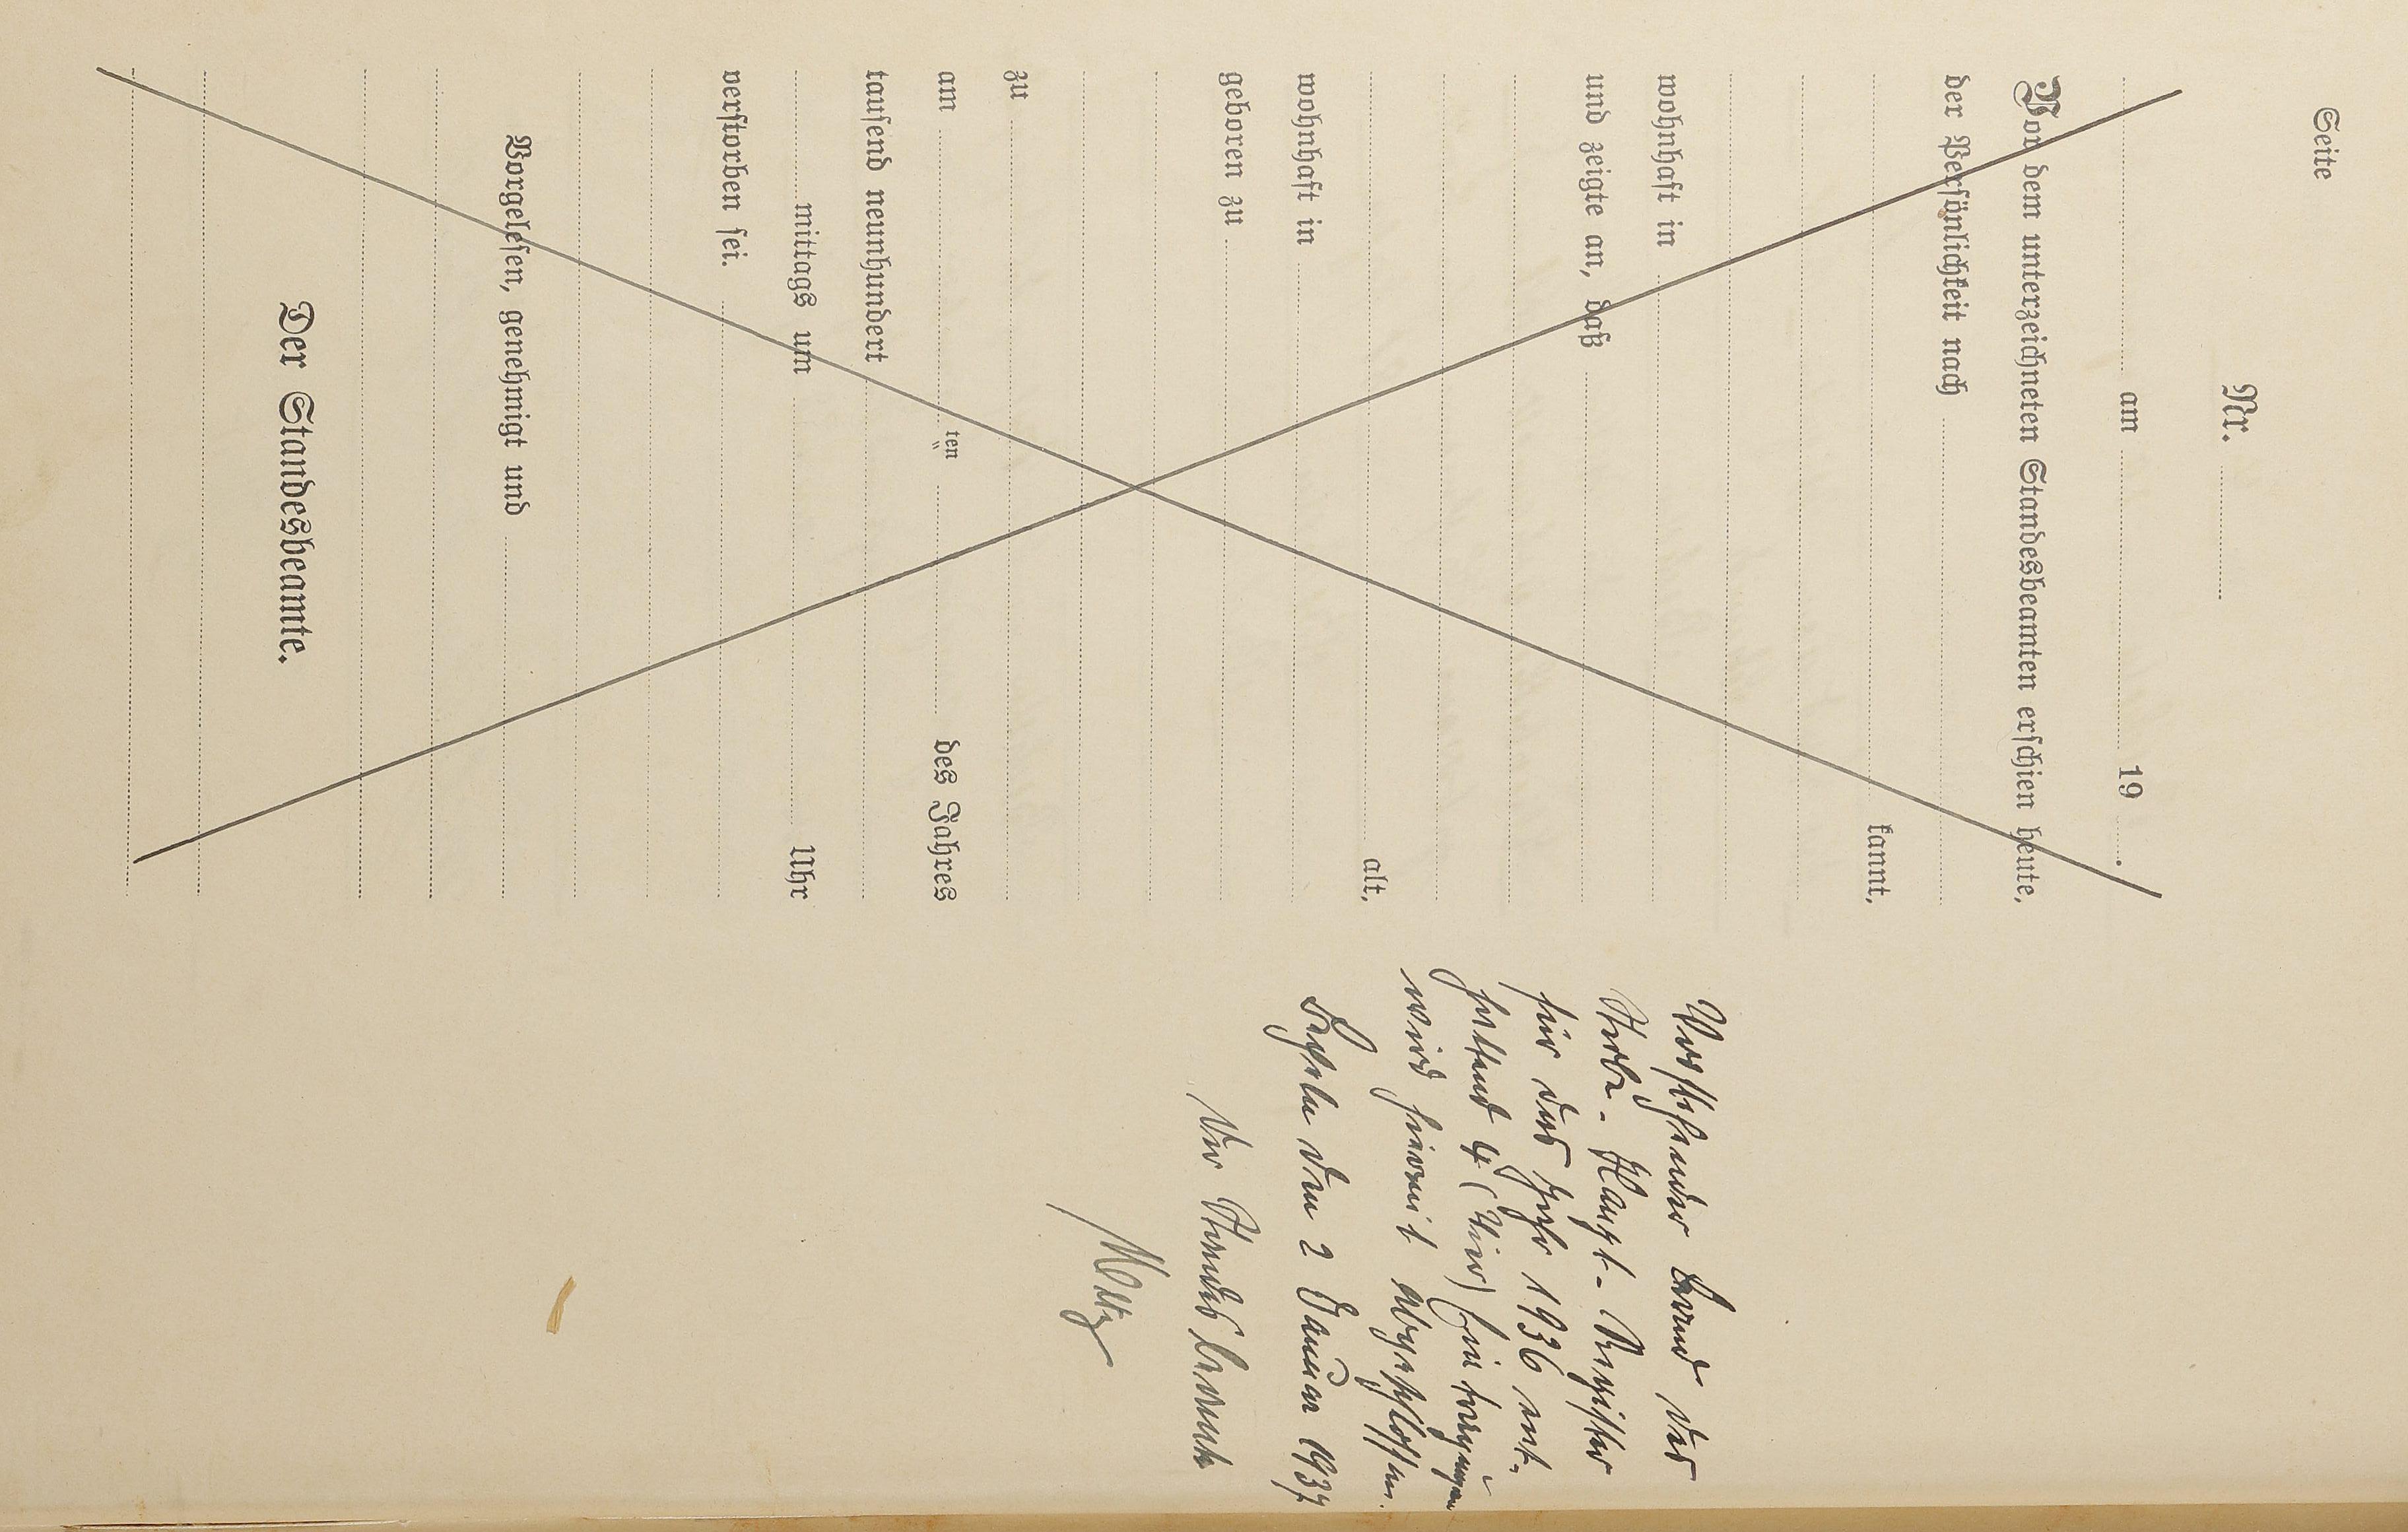 Seite
Nr.
am 19 .
Vor dem unterzeichneten Standesbeamten erschien heute,
der Persönlichkeit nach
kannt,
wohnhaft in
und zeigte an, daß
alt,
wohnhaft in
geboren zu
zu
am ten des Jahres
tausend neunhundert
mittags um Uhr
verstorben sei.
Vorgelesen, genehmigt und
Der Standesbeamte.
Vorstehender Band des
Sterbe-Haupt-Register
für das Jahr 1936 ent-
haltend 4 (Vier) Eintragungen
wird hiermit abgeschlossen.
den 2 Januar 1937
Der Standesbeamte